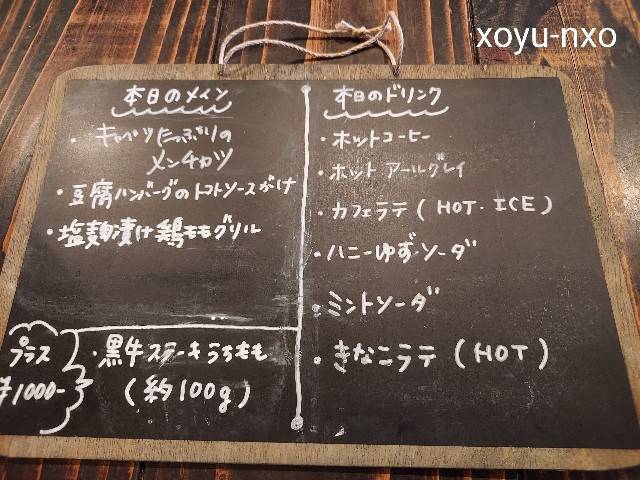 xoyu-nxo
本日のメイン
・キャベツたっぷりの
メンチカツ
・豆腐ハンバーグのトマトソースがけ
・塩麹漬け鶏ももグリル
プラス
¥1000-
・黒牛ステーキうちもも
(約100g)
本日のドリンク
・ホットコーヒー
・ホット アールグレイ
・カフェラテ(HOT・ICE)
・ハニーゆずソーダ
・ミントソーダ
・きなこラテ(HOT)